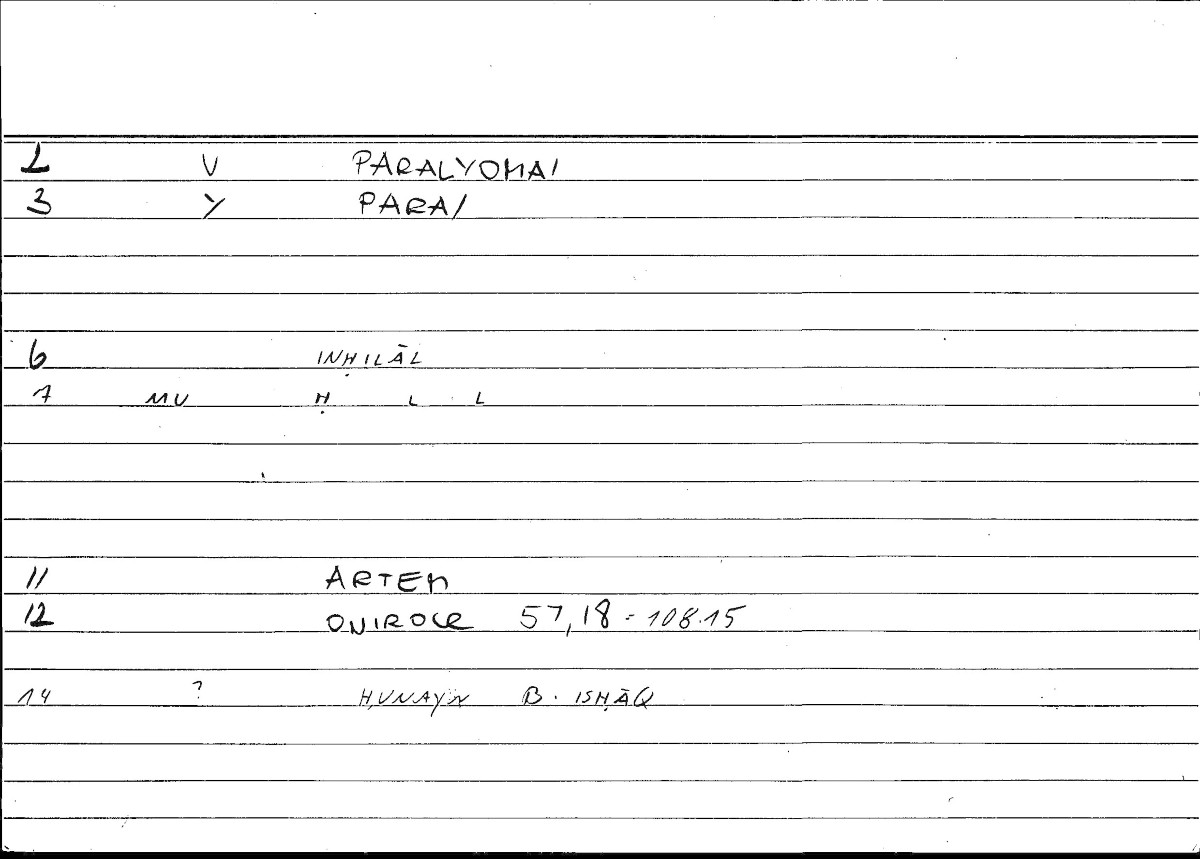 2 V PARALYOMAI
3 Y PARA/
6 INḤILĀL
7 MU Ḥ L L
11 ARTEM
12 ONIROCR 57,18 = 108.15
14 ? ḤUNAYN B. ISḤĀQ